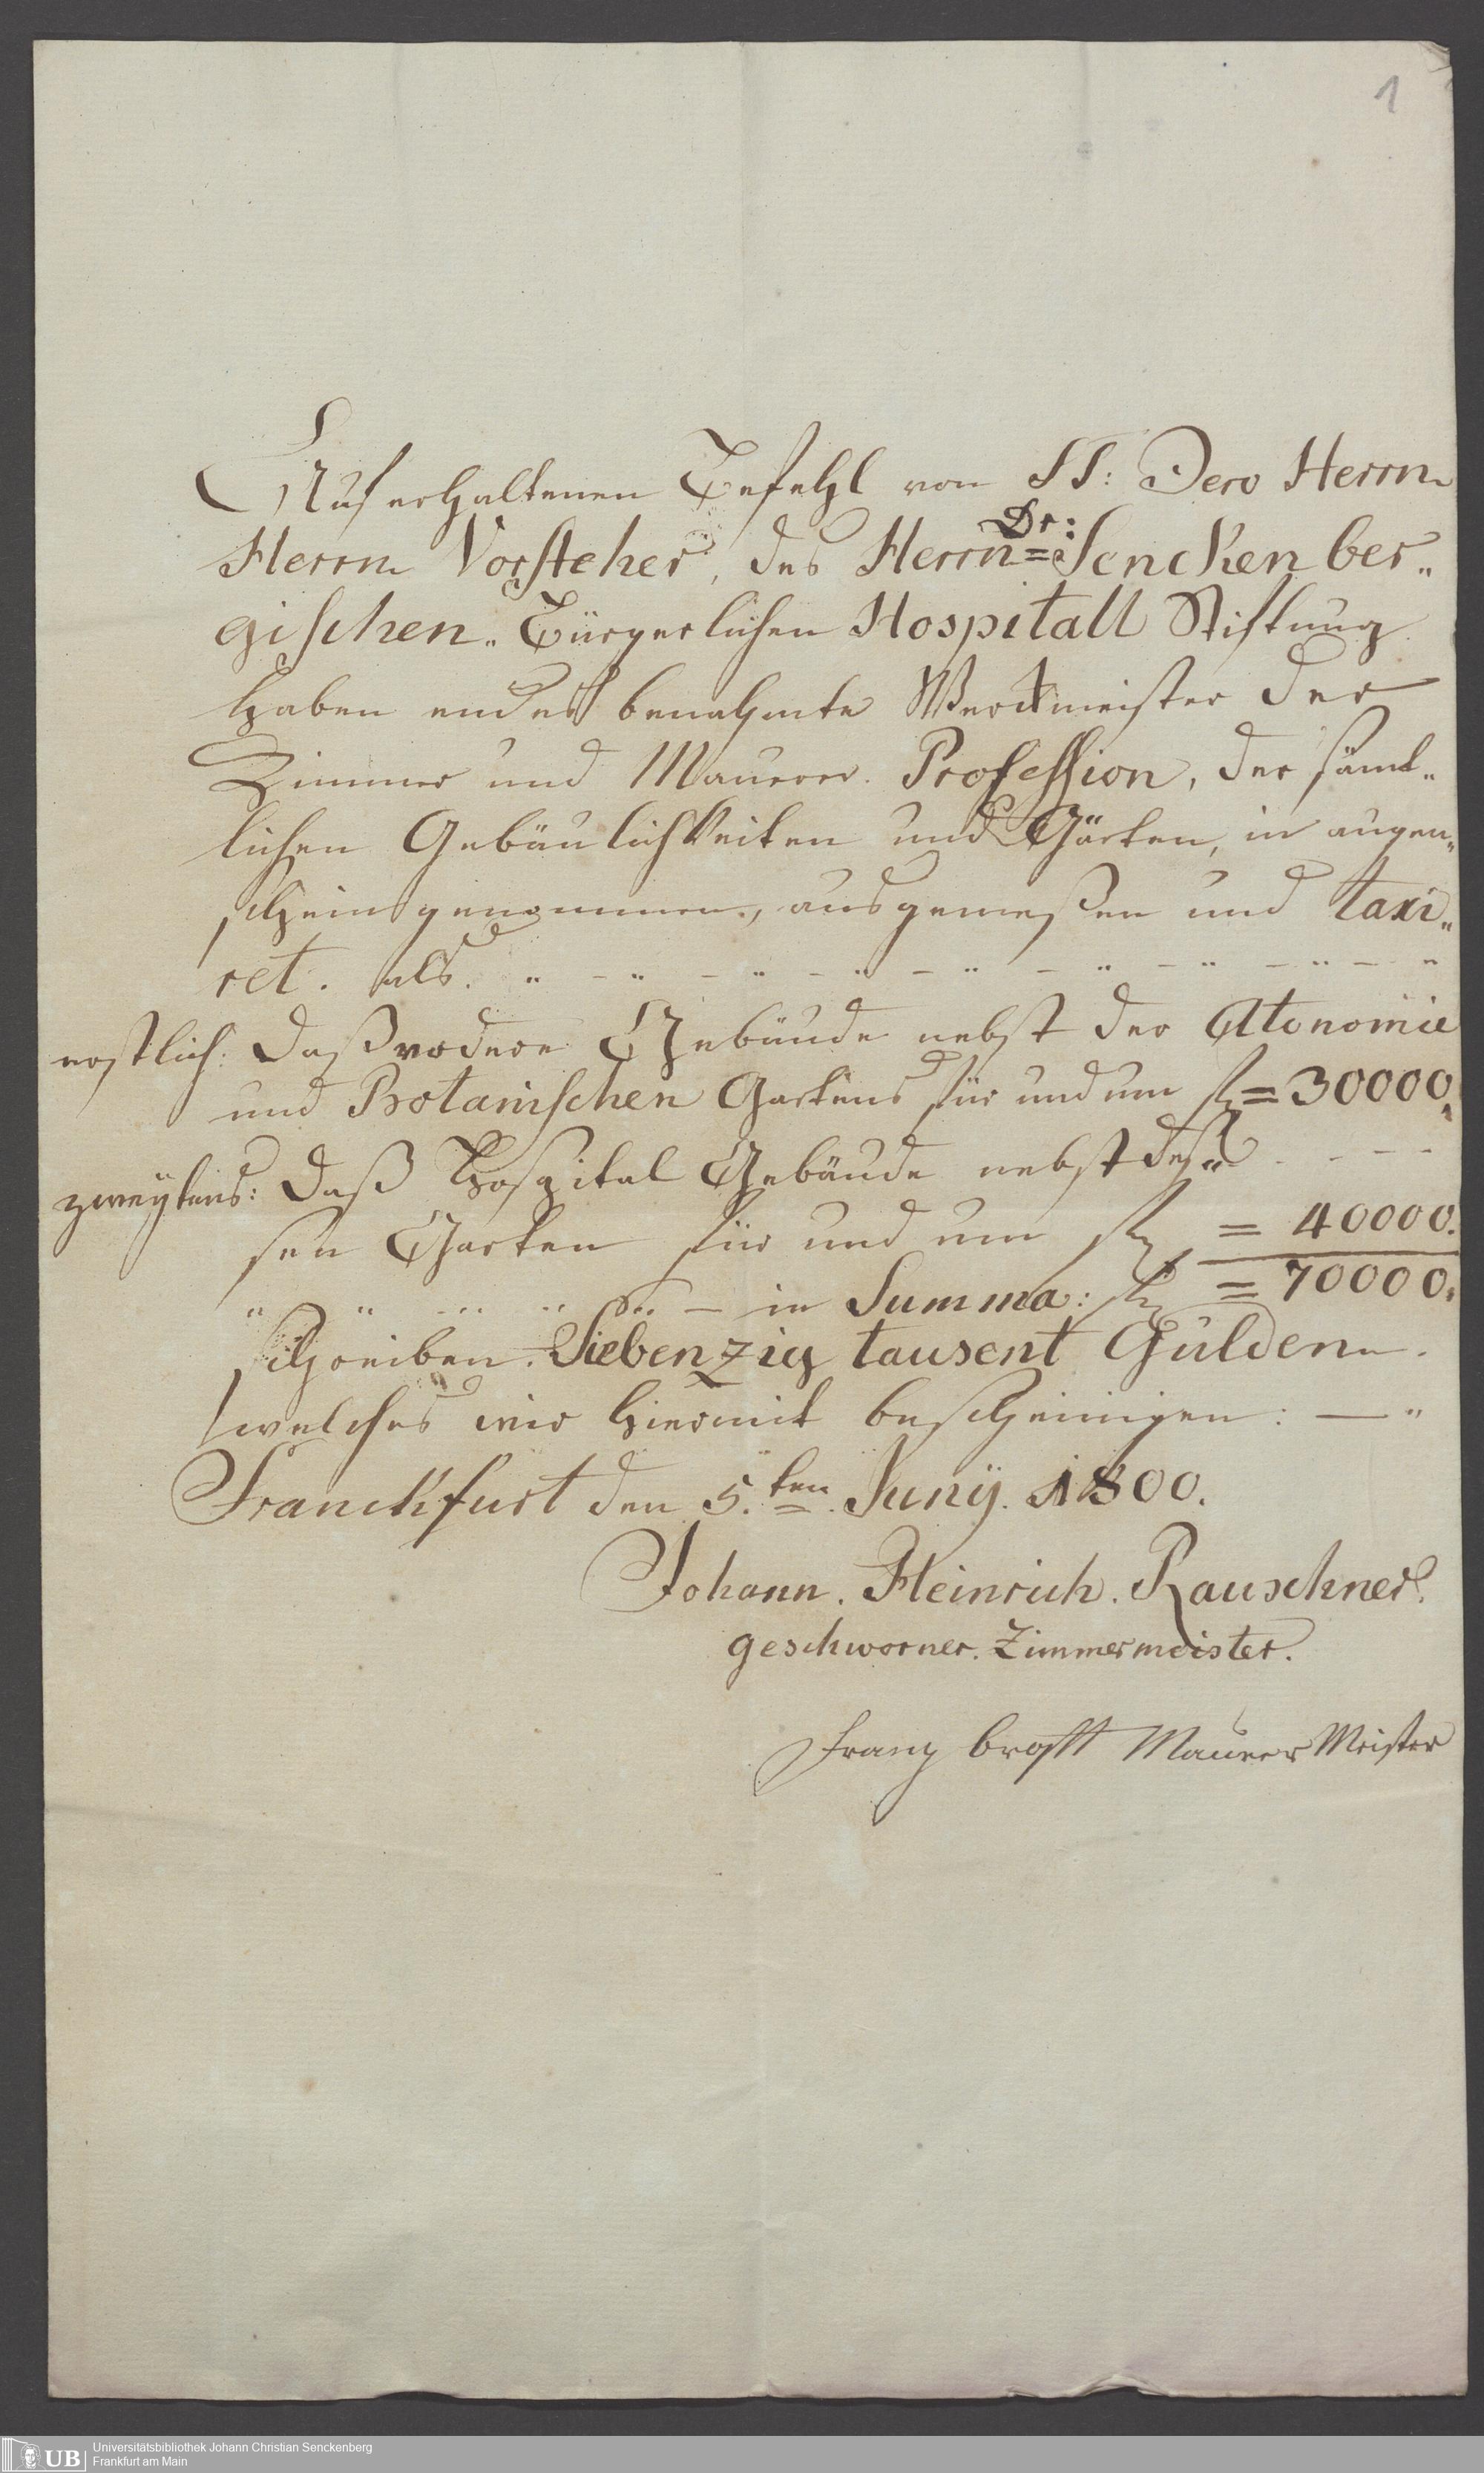 1
Auf erhaltenen Befehl von TT: Dero Herrn
Herrn Vorsteher, des Herrn = Dr: Senckenber„
gischen„ Bürgerlichen Hospitall Stiftung
haben endes benahmte Werckmeister der
Zimmer und Maurer. Profession, der sämt„
lichen Gebäulichkeiten und Gärten, in augen„
schein genommen, ausgemeßen und taxi„
ret. als. „ – „ – „ – „ – „ – „ – „ – „ – „
erstlich: Daß vodere Gebäude nebst der Atonomie
und Botanischen Gartens für und um fl = 30000.
zweytens: Daß Hospital Gebäude nebst deß„ - - - -
sen Garten für und um fl = 40000.
„ „ „ „ „ – in Summa: fl = 70000.
schreiben. Siebenzig tausent Gulden.
welches wir hiermit bescheinigen: — „
Franckfurt den 5.ten Juny. 1800.
Johann. Heinrich. Rauschner.
geschworner. Zimmermeister.
Franz Brofft Maurer Meister
UB
Universitätsbibliothek Johann Christian Senckenberg
Frankfurt am Main